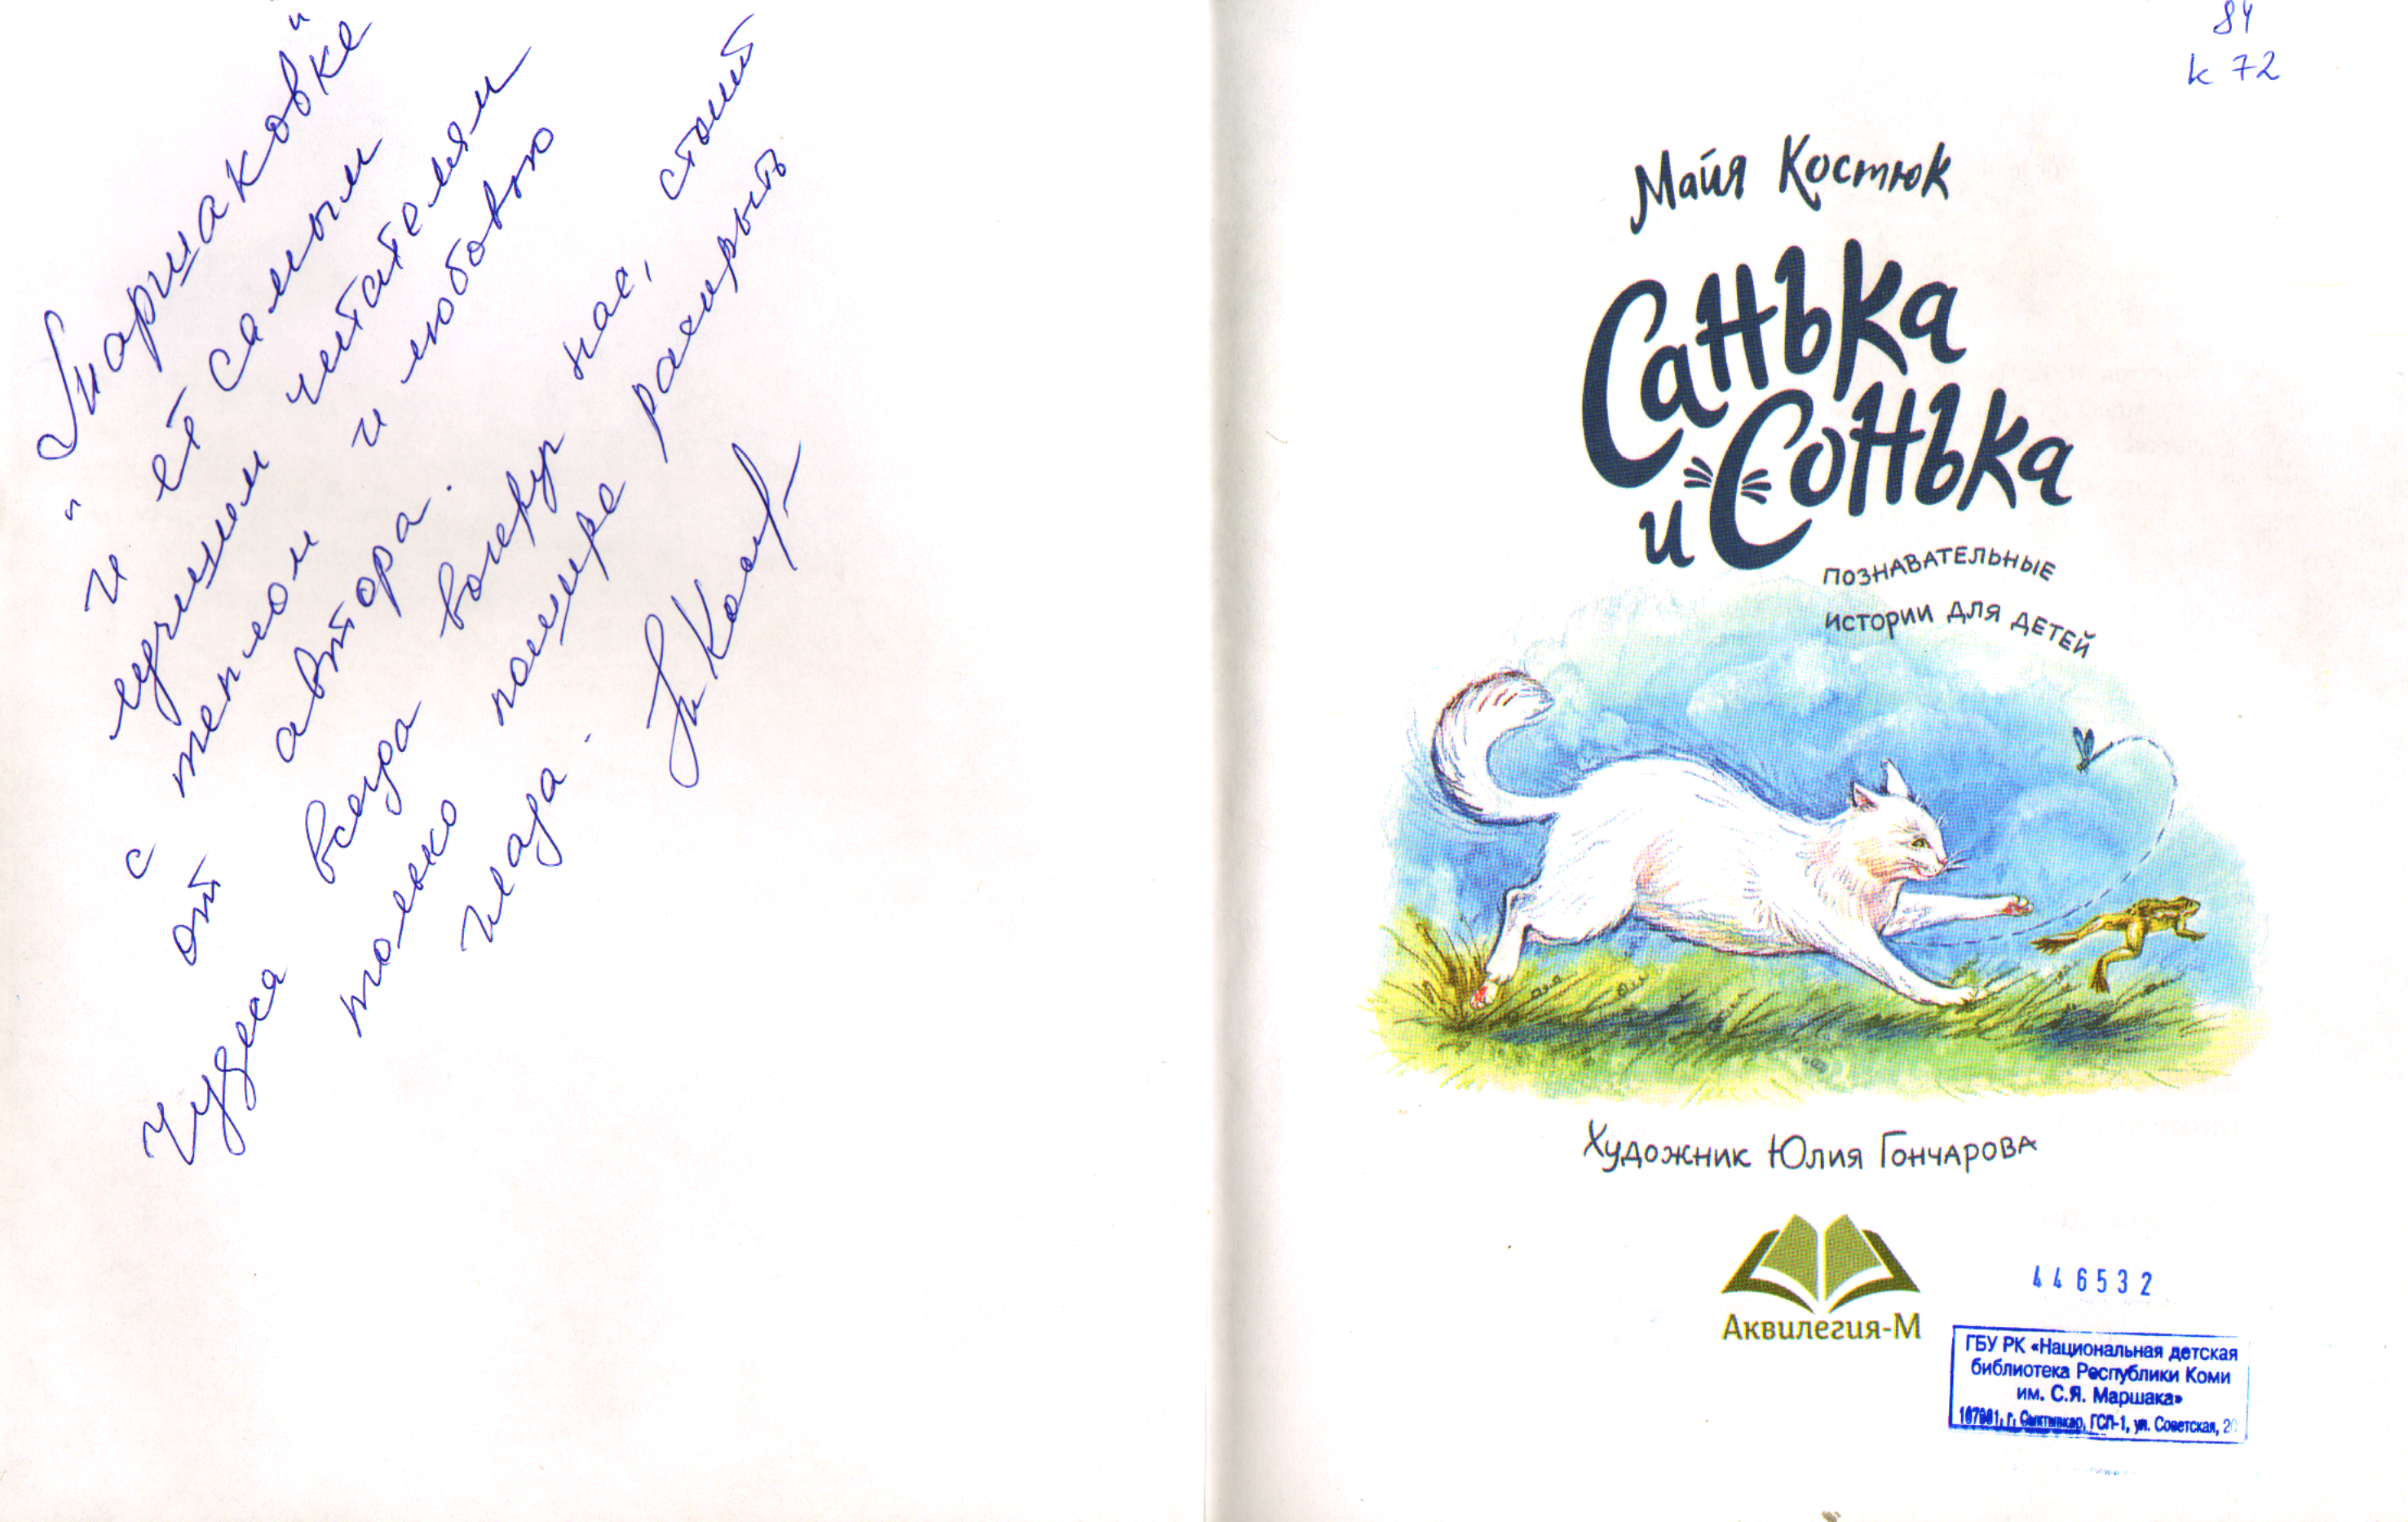 "Маршаковке"
и её самым
лучшим читателям
с теплом и любовью
от автора.
Чудеса всегда вокруг нас, стоит
только пошире раскрыть
глаза.
84
к 72
Майя Костюк
Санька
и Сонька
познавательные
истории для детей
Художник Юлия Гончарова
Аквилегия-М
446532
ГБУ РК «Национальная детская
библиотека Республики Коми
им. С.Я. Маршака»
167981, г. Сыктывкар, ГСП-1, ул. Советская, 20